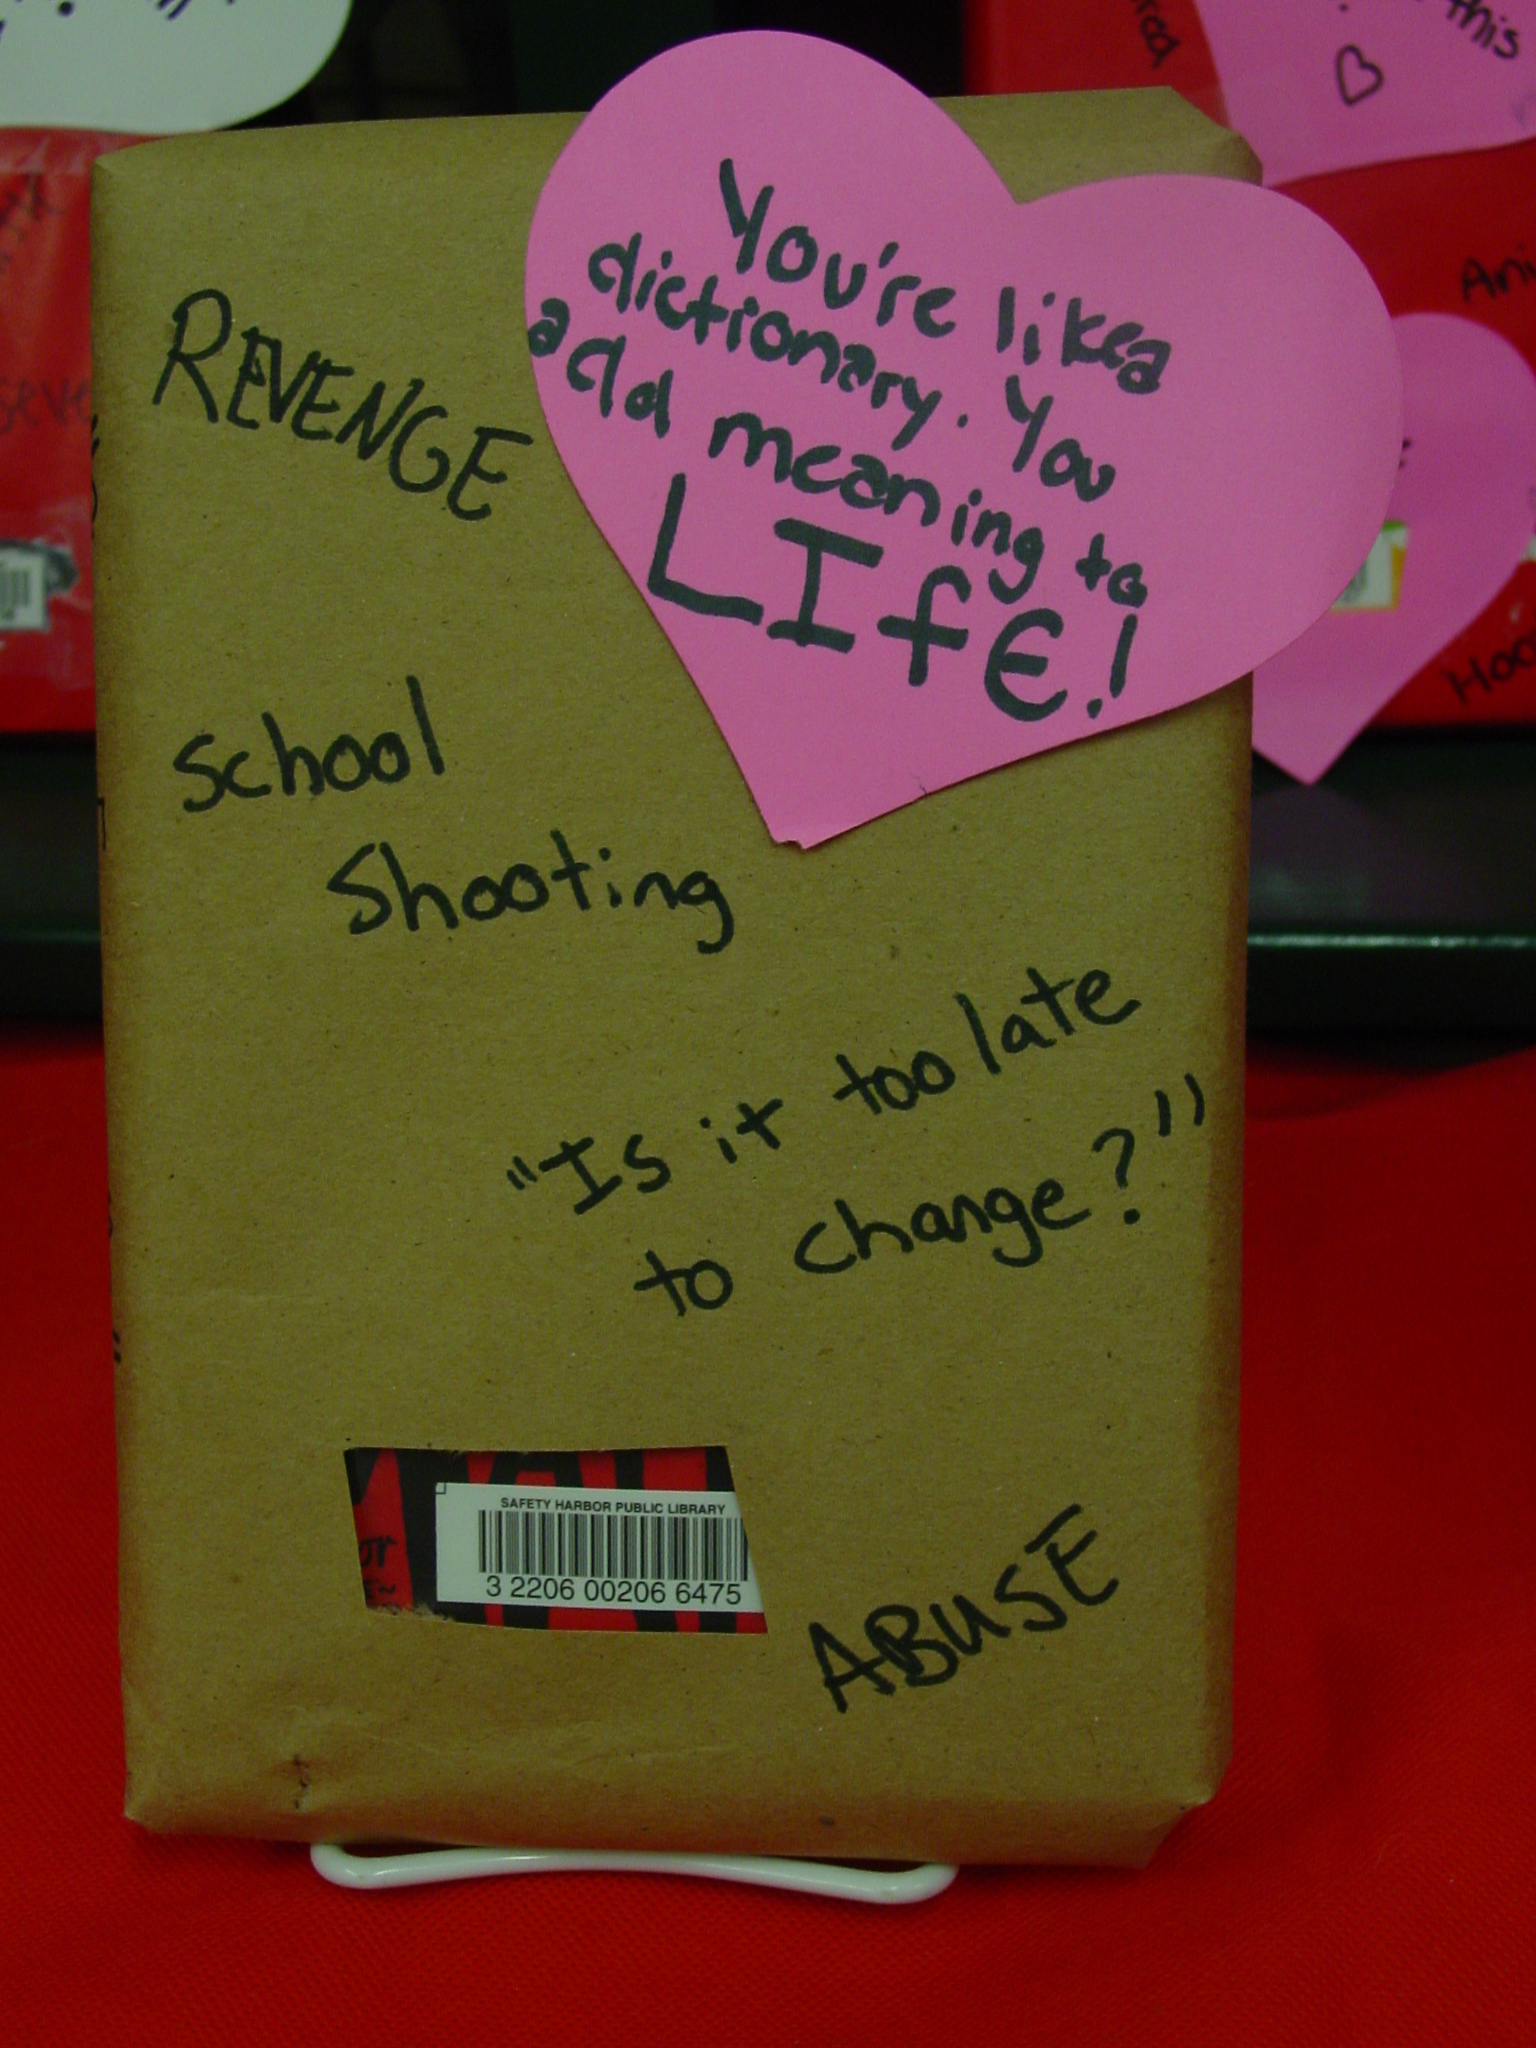 this
You're like a
dictionary. You
add meaning to
LIfE!
REVENGE
School
Shooting
"Is it too late
to change?"
SAFETY HARBOR PUBLIC LIBRARY
3 2206 00206 6475
or
ABUSE